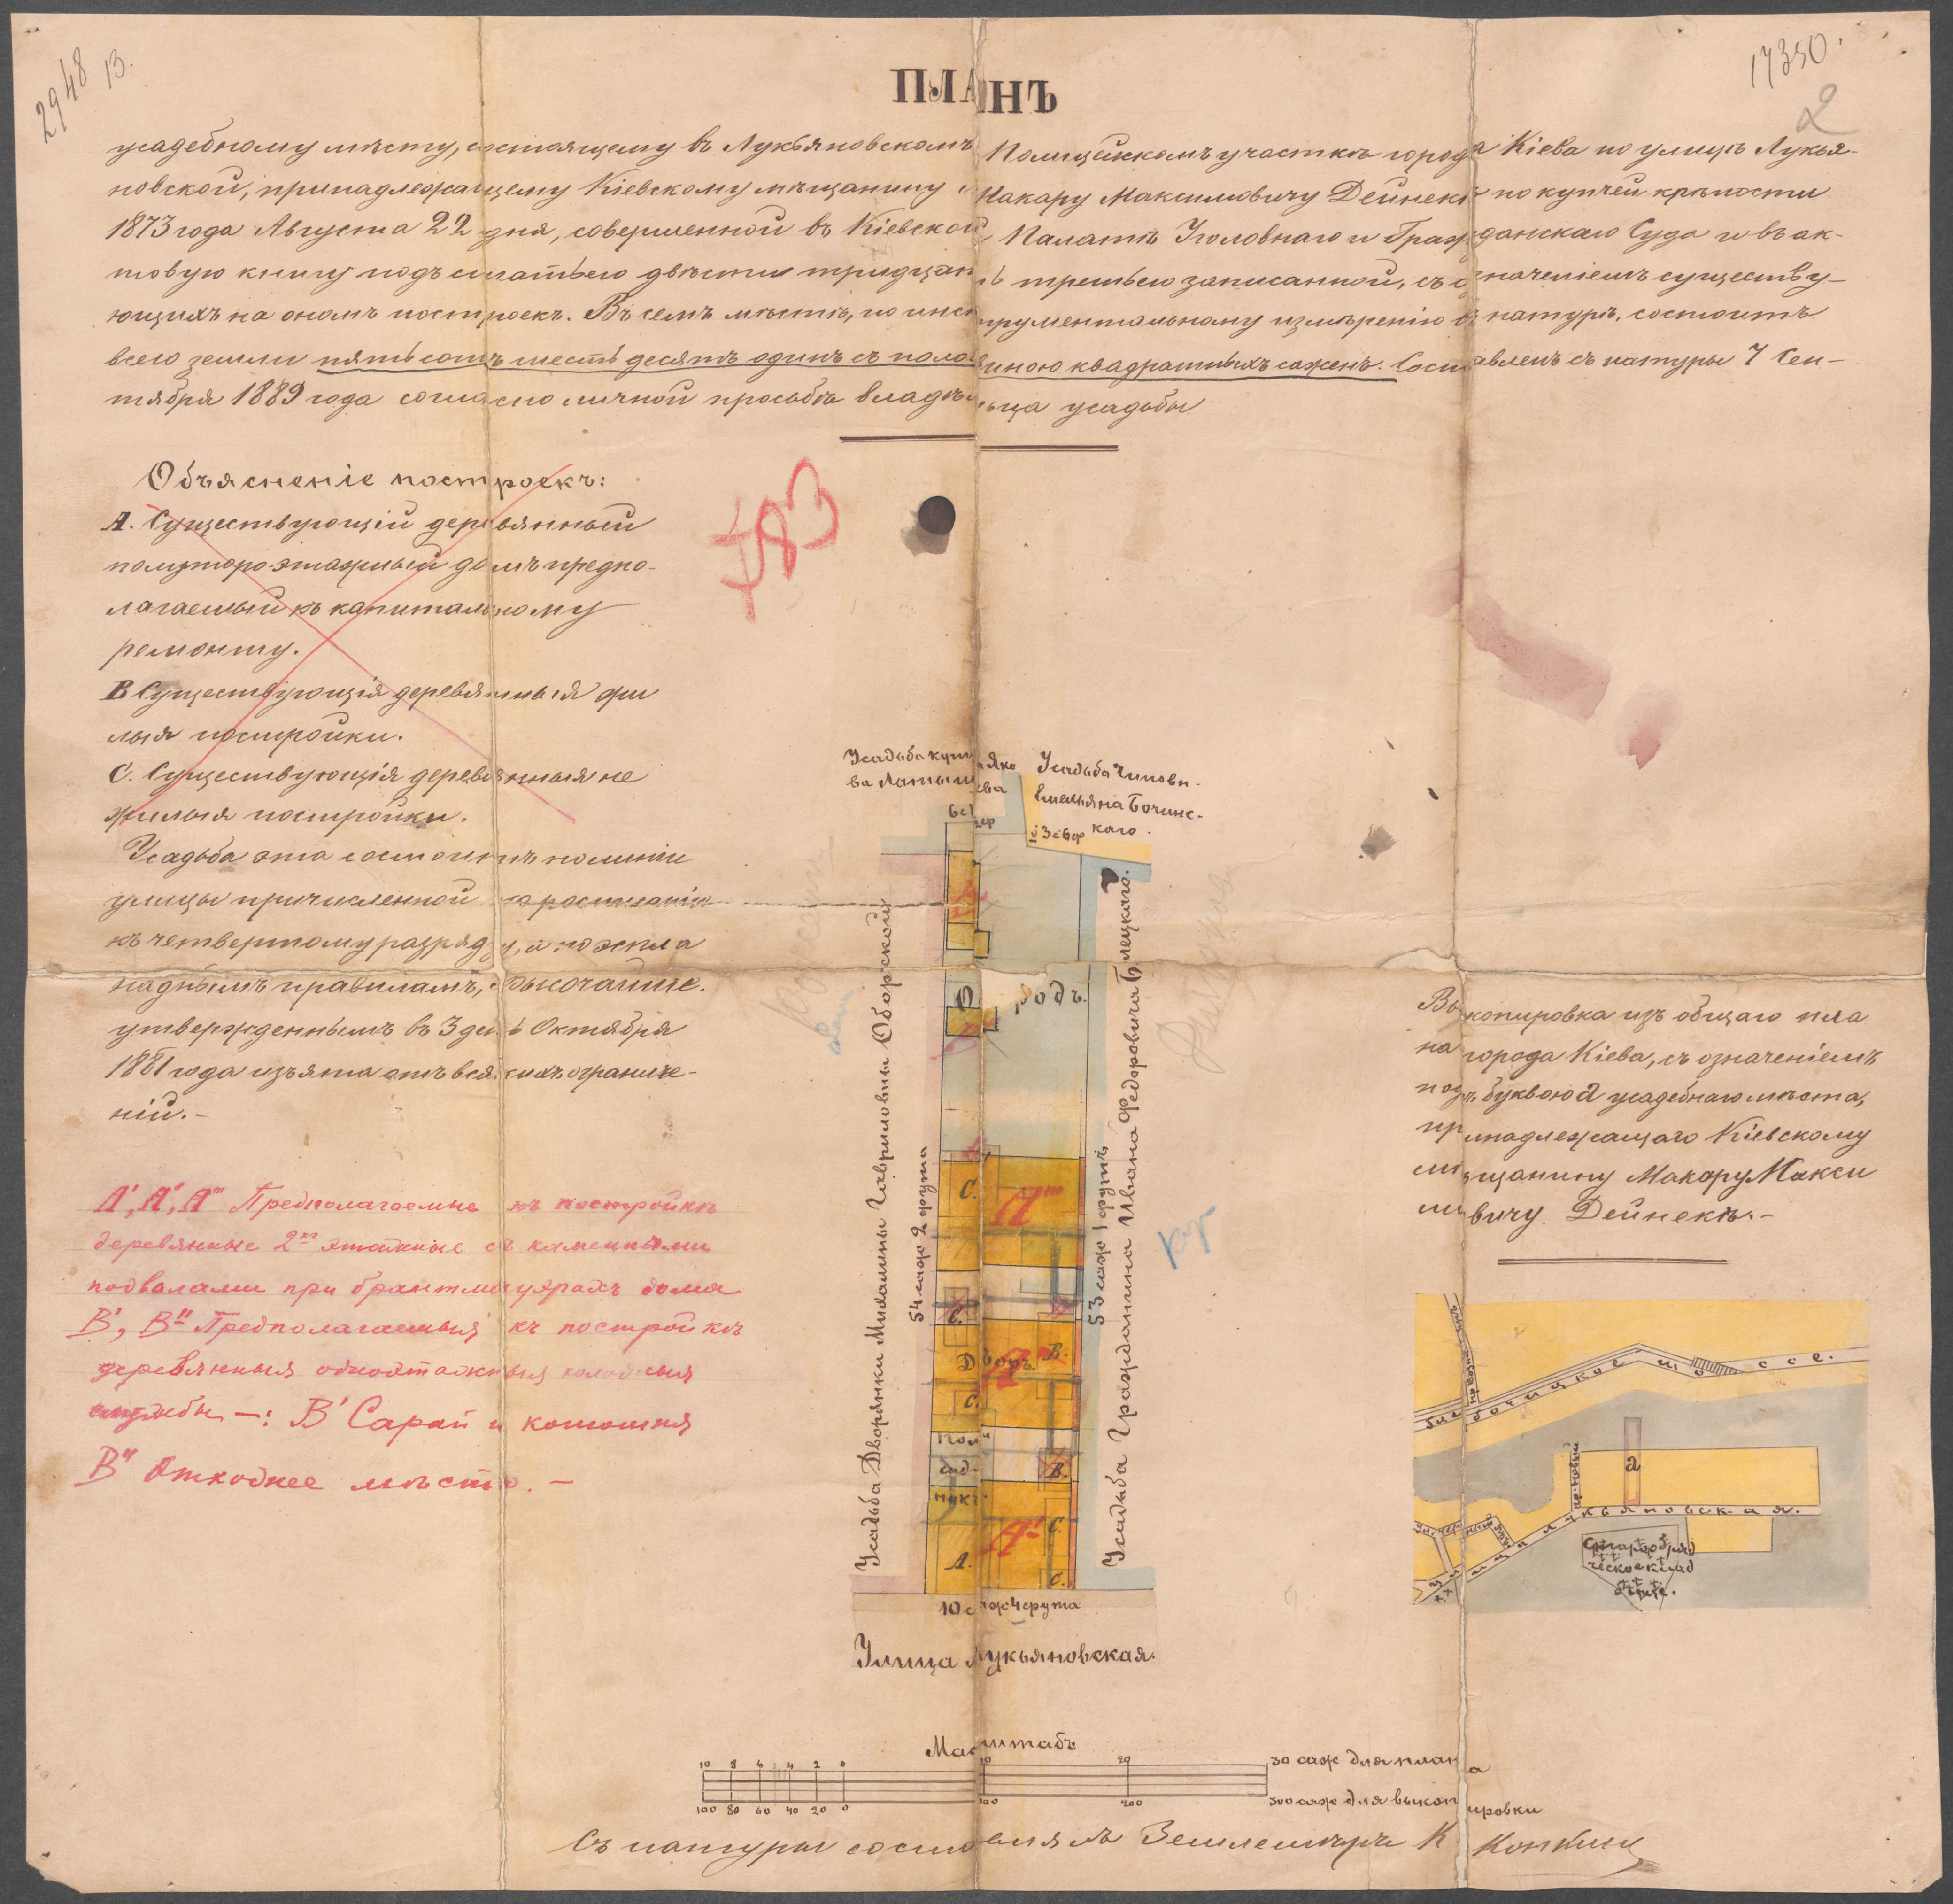 2948
13.
17350.
2
ПЛАНЪ
усадебному мѣсту, состоящему въ Лукьяновскомъ Полицейскомъ участкѣ города Кіева по улицѣ Лукья-
новской, принадлежащему Кіевскому мѣщанину Макару Максимовичу Дейнекѣ по купчей крѣпости
1873 года Августа 22 дня, совершенной въ Кіевской Палатѣ Уголовнаго и Гражданскаго Суда и въ ак-
товую книгу подъ статьею двѣсти тридцать третьею записанной, съ означеніемъ существу-
ющихъ на ономъ построекъ. Въ семъ мѣстѣ, по инструментальному измѣренію въ натурѣ, состоитъ
всего земли пятьсотъ шестьдесятъ одинъ съ половиною квадратныхъ сажень. Составленъ съ натуры 7 Сен-
тября 1889 года согласно личной просьбѣ владѣльца усадьбы
Объясненіе построекъ:
А. Существующій деревянный
полутороэтажный домъ предпо-
лагаемый къ капитальному
ремонту.
В Существующія деревянныя жи
лыя постройки.
С. Существующія деревянныя не
жилыя постройки.
Усадьба эта состоитъ по линіи
улицы причисленной по росписанію
къ четвертому разряду, а по эспла
наднымъ правиламъ, Высочайше
утвержденнымъ въ 3 день Октября
1881 года изъята отъ всякихъ ограниче-
ній.-
А', А'', А''' Предполагаемые къ постройкѣ
деревянные 2хъ этажные съ каменными
подвалами при брантмауерахъ дома
В', В'' Предполагаемыя къ постройкѣ
деревянныя одноэтажныя холодныя
службы -: В' Сарай и конюшня
В'' Отхожее мѣсто. -
483
Усадьба купца Яко
ва Латышева
Усадьба Чиновн.
Емельяна Бочинс-
каго.
Огородъ.
Усадьба Дворянки Миланьи Гавриловны Оборской
54 саж 2 фута
53 саж 1 футъ
Усадьба Гражданина Ивана Федоровича Билецкаго.
С.
А'''
С.
Дворъ.
В.
А''
С.
Поли
сад-
никъ
В.
А'
С.
А.
С.
10 саж 4 фута
Улица Лукьяновская.
кр
Выкопировка изъ общаго пла
на города Кіева, съ означеніемъ
подъ буквою а усадебнаго мѣста,
принадлежащаго Кіевскому
мѣщанину Макару Макси
мовичу Дейнекѣ.-
шоссе.
а
улица Лукьяновская.
Старообряд
ческое клад
бище.
Масштабъ
10 8 6 4 2 0 10 20 30 саж для плана
100 80 60 40 20 0 100 200 300 саж для выкопировки
Съ натуры составлялъ Землемѣръ К